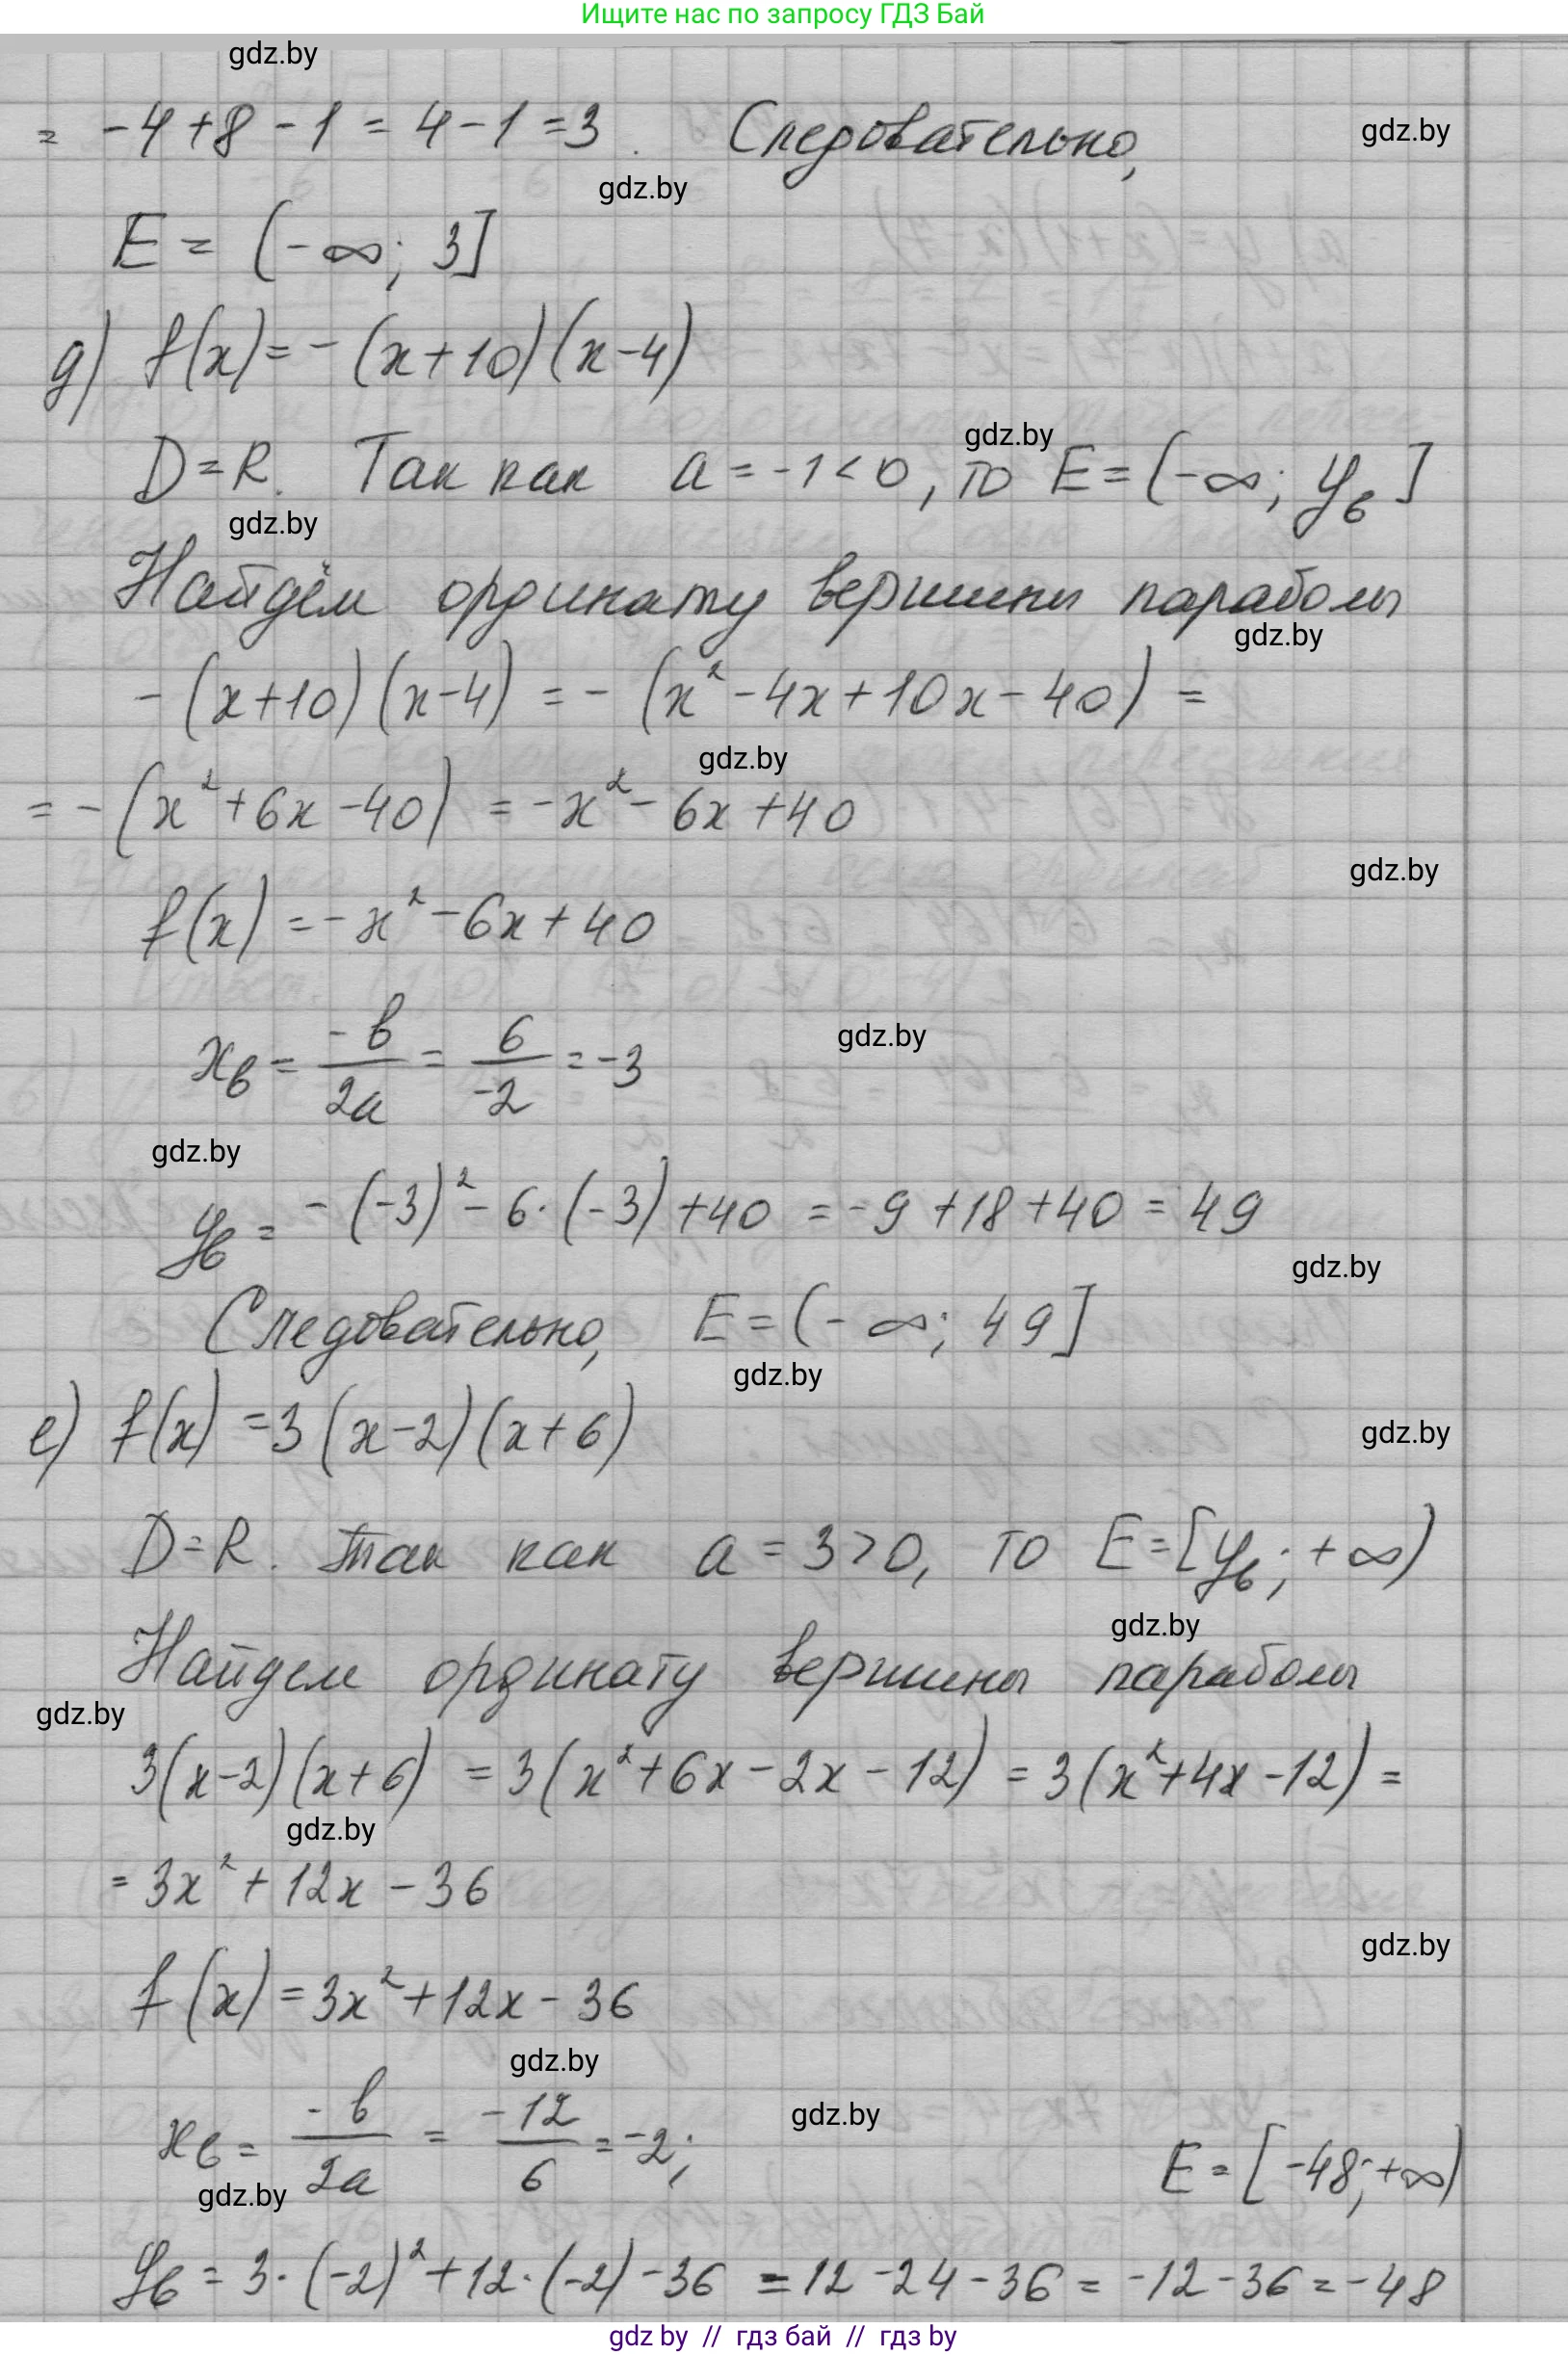 Ищите нас по запросу ГДЗ Бай
gdz.by
= -4+8-1 = 4-1 =3. Следовательно,
gdz.by
gdz.by
E = (-∞; 3]
д) f(x) = -(x+10)(x-4)
gdz.by
D=R. Так как a = -1<0, то E = (-∞; yв]
gdz.by
Найдём ординату вершины параболы
gdz.by
-(x+10)(x-4) = -(x²-4x+10x-40) =
gdz.by
= -(x²+6x-40) = -x²-6x+40
gdz.by
f(x) = -x²-6x+40
gdz.by
xв = -b/2a = 6/-2 = -3
gdz.by
yв = -(-3)²-6·(-3)+40 = -9+18+40 = 49
gdz.by
Следовательно, E=(-∞; 49]
gdz.by
е) f(x) =3(x-2)(x+6)
gdz.by
D=R. Так как a = 3>0, то E=[yв; +∞)
gdz.by
Найдем ординату вершины параболы
gdz.by
3(x-2)(x+6) = 3(x²+6x-2x-12) = 3(x²+4x-12) =
gdz.by
= 3x²+12x-36
gdz.by
f(x) = 3x²+12x-36
gdz.by
gdz.by
xв = -b/2a = -12/6 = -2; E = [-48; +∞)
gdz.by
yв = 3·(-2)²+12·(-2)-36 = 12-24-36 = -12-36 = -48
gdz by // гдз бай // гдз by